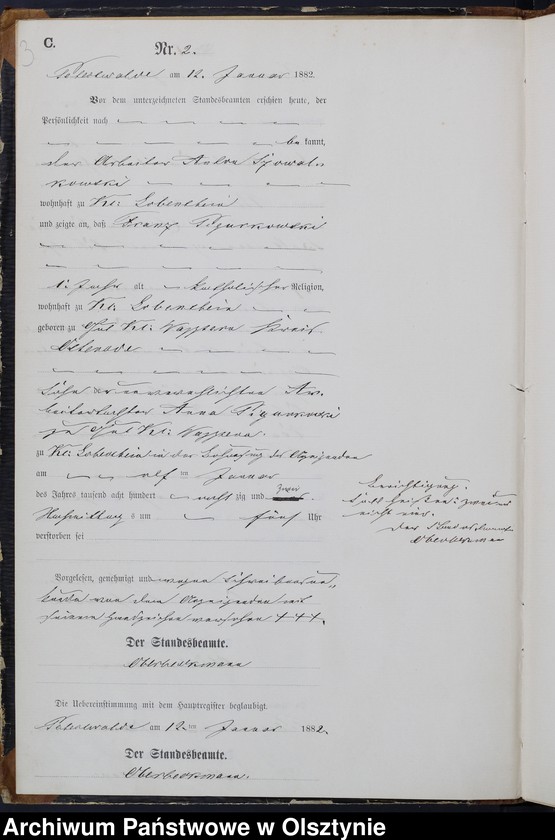 3
C.
Nr. 2.
am 12. Januar 1882.
Vor dem unterzeichneten Standesbeamten erschien heute, der
Persönlichkeit nach
be kannt,
der Arbeiter
kowski
wohnhaft zu Kl: Lobenstein
und zeigte an, daß Franz
1 Jahr alt katholischer Religion,
wohnhaft zu Kl: Lobenstein
geboren zu Gut Kl: Kreis
Osterode
Sohn der unverehelichten Ar-
beitertochter Anna
zu Gut Kl:
zu Kl: Lobenstein in der Behausung des Anzeigenden
am elf ten Januar
des Jahres tausend acht hundert acht zig und zwei
Nachmittags um fünf Uhr
verstorben sei
Berichtigung:
soll heißen: zwei
nicht eins.
Der Standesbeamte
Oberbeckmann
Vorgelesen, genehmigt und wegen Schreibensun-
kunde von dem Anzeigenden mit
seinem Handzeichen versehen +++.
Der Standesbeamte.
Oberbeckmann
Die Uebereinstimmung mit dem Hauptregister beglaubigt.
am 12 ten Januar 1882.
Der Standesbeamte.
Oberbeckmann.
Archiwum Państwowe w Olsztynie